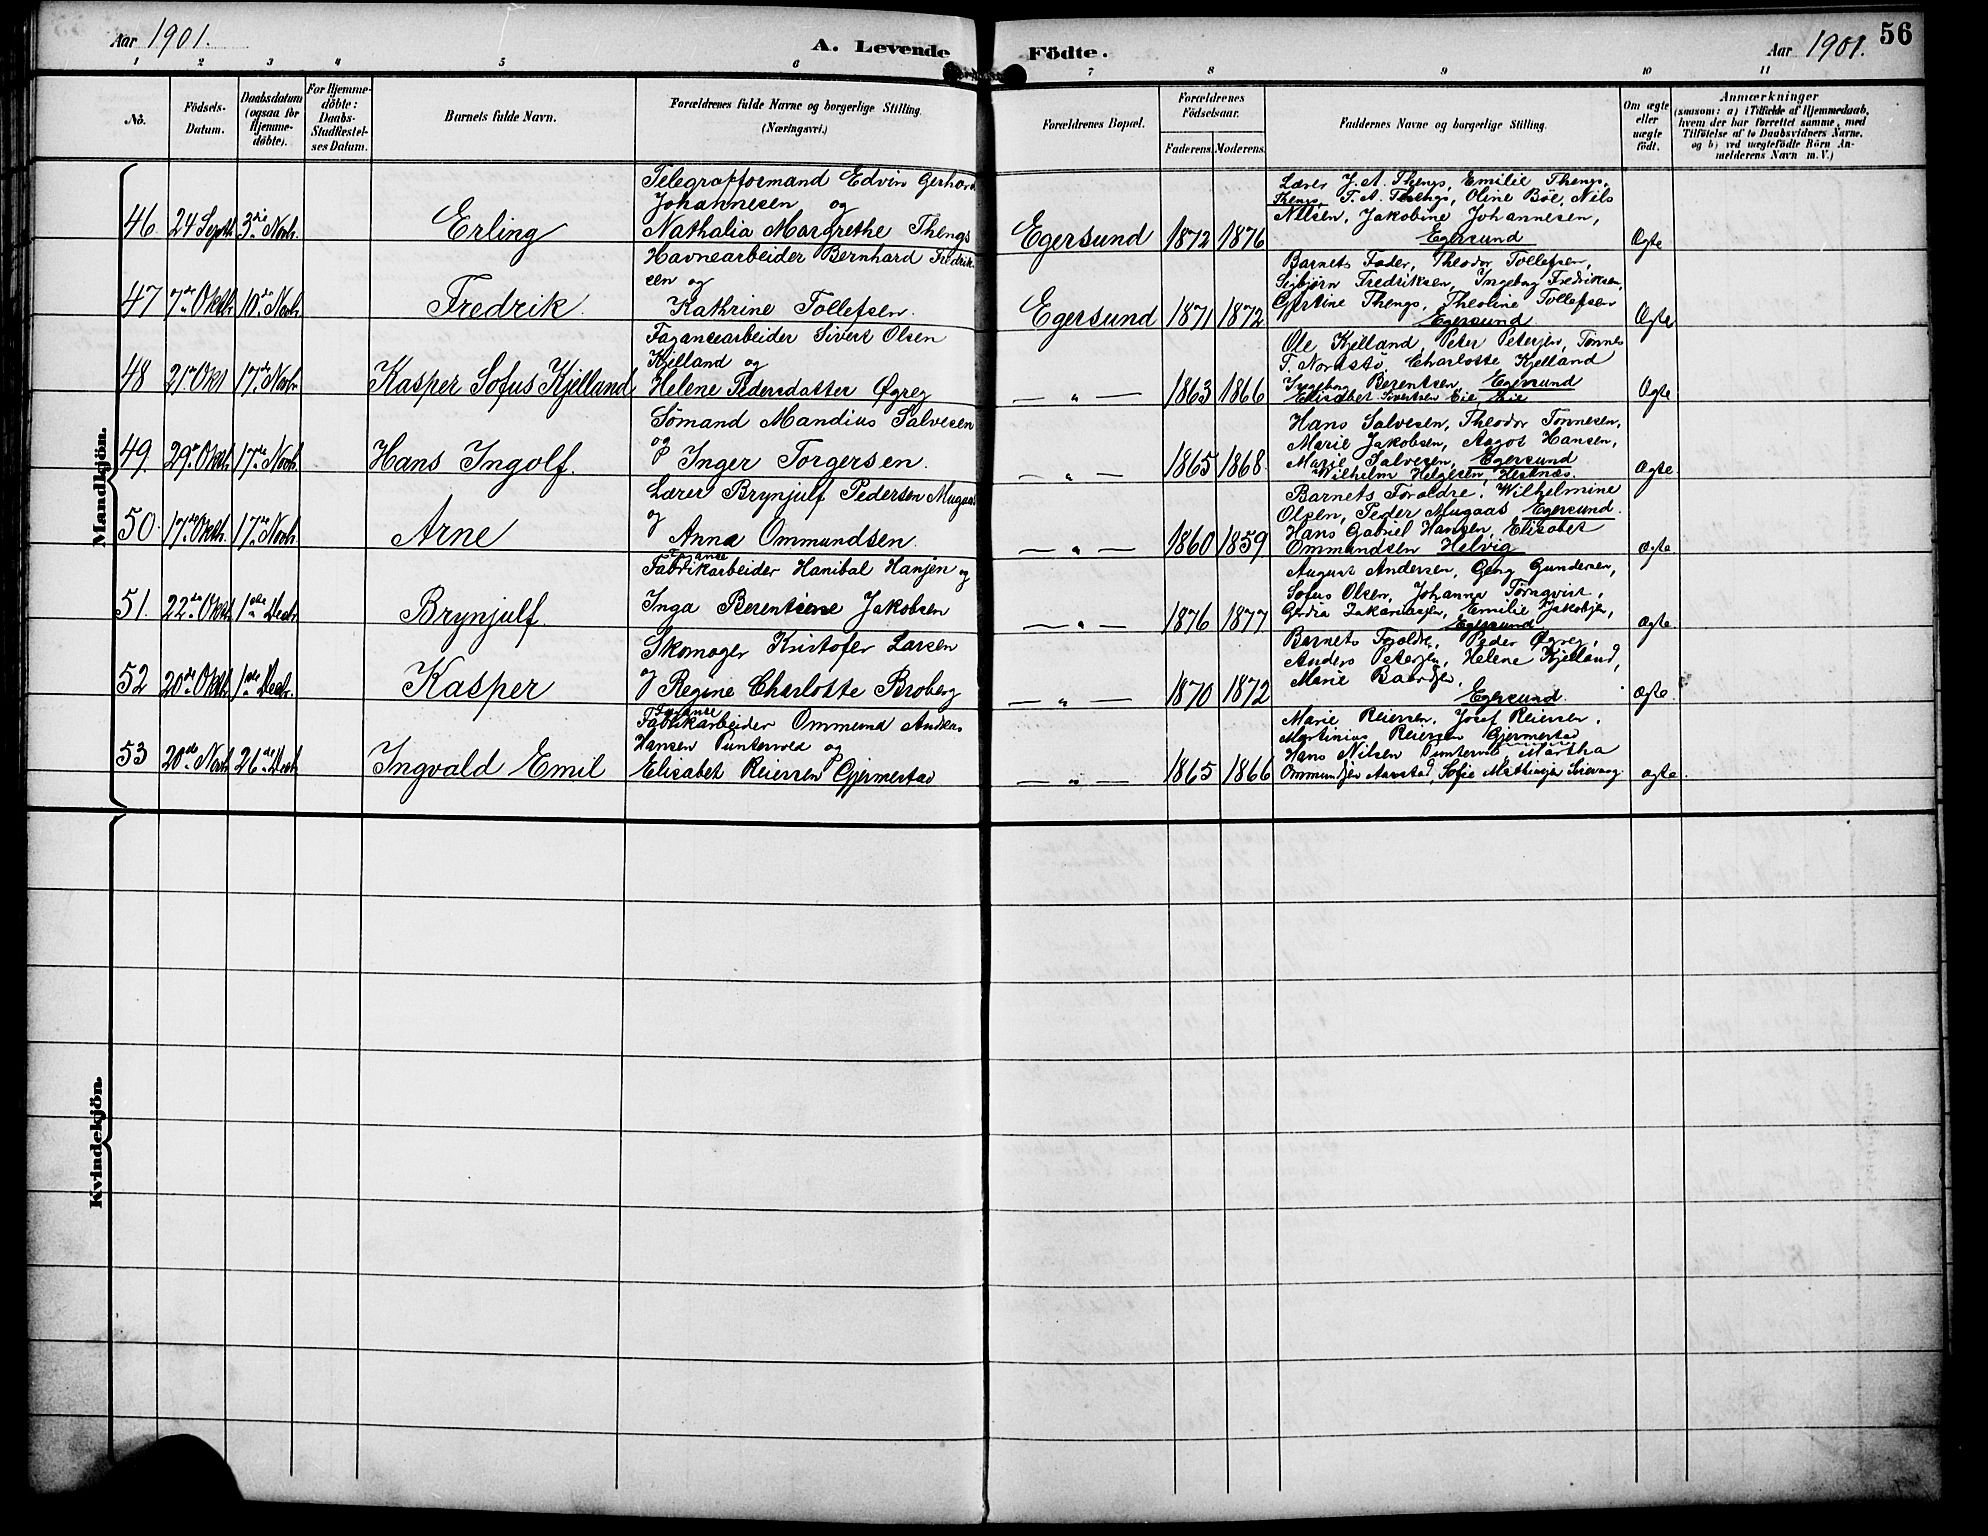 Aar 1901.
A. Levende Födte.
Aar 1901.
56
1 2 3 4 5 6 7 8 9 10 11
No.
Födsels-
Datum.
Daabsdatum
(ogsaa for
Hjemme-
döbte).
For Hjemme-
döbte:
Daabs-
Stadfestel-
ses Datum.
Barnets fulde Navn.
Forældrenes fulde Navne og borgerlige Stilling
(Næringsvei.)
Forældrenes Bopæl.
Forældrenes
Födselsaar.
Faderens. Moderens.
Faddernes Navne og borgerlige Stilling.
Om ægte
eller
uægte
födt.
Anmærkninger
(saasom: a) i Tilfælde af Hjemmedaab,
hvem der har forrettet samme, med
Tilföielse af to Daabsvidners Navne,
og b) ved uægtefödte Börn An-
melderens Navn m. V.)
Mandkjön.
46. 24 Septb. 3die Novb.
Erling
Telegrafformand Edvin Gerhard
Johannesen og
Nathalia Margrethe Thengs
Egersund 1872 1876
Lærer J. A. Thengs, Emilie Thengs,
Thengs, T. A. Thengs, Oline Böe, Nils
Nilsen, Jakobine Johannesen,
Egersund
Ægte
47 7de Oktb. 10de Novb.
Fredrik.
Havnearbeider Bernhard Fredrik-
sen og
Kathrine Tollefsen.
Egersund 1871 1872
Barnets Fader, Theodor Tollefsen,
Sigbjørn Fredriksen, Ingeborg Fredriksen,
Gjertine Thengs, Theoline Tollefsen
Egersund
Ægte
48 21de Okt 17de Novb.
Kasper Sofus Kjelland
Fajancearbeider Sivert Olsen
Kjelland og
Helene Pedersdatter Øgrey
— " — 1863 1866
Ole Kjelland, Peter Petersen, Tønnes
T. Nordstö, Charlotte Kjelland
Ingeborg Berentsen, Egersund
Elisabet Sivertsen Eie, Eie
Ægte
49. 29de Oktb. 17de Novb.
Hans Ingolf.
Sömand Mandius Salvesen
og
Inger Torgersen.
— " — 1865 1868.
Hans Salvesen, Theodor Tönnesen,
Marie Jakobsen, Aagot Hansen,
Marie Salvesen, Egersund
Wilhelm Helgesen, Hestnæs.
Ægte
50. 17de Oktb. 17de Novb.
Arne
Lærer Brynjulf Pedersen Mugaas
og
Anna Ommundsen.
— " — 1860 1859.
Barnets Forældre, Wilhelmine
Olsen, Peder Mugaas Egersund.
Hans Gabriel Hansen, Elisabet
Ommundsen Helvig
Ægte
51. 22de Oktb. 1ste Decb.
Brynjulf.
Fajanse
Fabrikarbeider Hanibal Hansen og
Inga Berentsene Jakobsen
— " — 1876 1877
August Andersen, Georg Gundersen,
Sofus Olsen, Johanna Törnqvist,
Gerdia Zakariasen, Emilie Jakobsen,
Egersund
Ægte
52 20de Oktb. 1ste Decb.
Kasper
Skomager Kristofer Larsen
og Regine Charlotte Broberg
— " — 1870 1872
Barnets Forældre, Peder Øgrey,
Anders Petersen, Helene Kjelland,
Marie Baardsen,
Egersund.
Ægte.
53 20de Novb. 26de Decb.
Ingvald Emil
Fajanse
Fabrikarbeider Ommund Andreas
Hansen Puntervold og
Elisabet Reiersen Gjermestad
— " — 1865 1866
Marie Reiersen, Josef Reiersen,
Martinius Reiersen Gjermestad
Hans Nilsen Puntervold Martha
Ommundsen Aarstad, Sofie Mathiasen
ægte.
Kvindekjön.